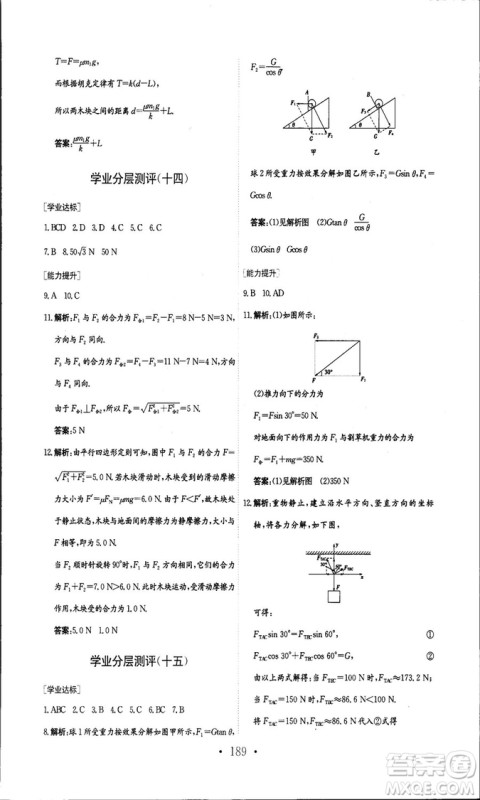 T=F=μm₁g,
而根据胡克定律有 T=k(d-L),
所以两木块之间的距离 d=μm₁g/k+L.
答案:μm₁g/k+L
学业分层测评(十四)
[学业达标]
1.BCD 2.D 3.D 4.D 5.C 6.C
7.B 8.50√3 N 50 N
[能力提升]
9.A 10.C
11.解析:F₁ 与 F₂ 的合力为 F合1=F₂-F₁=8 N-5 N=3 N,
方向与 F₂ 同向.
F₃ 与 F₄ 的合力为 F合2=F₄-F₃=11 N-7 N=4 N,
方向与 F₄ 同向.
由于 F合1⊥F合2,所以 F合=√(F²合1+F²合2)=5 N.
答案:5 N
12.解析:由平行四边形定则可知:F₁、F₂ 的合力 F=
√(F₁²+F₂²)=5.0 N.若木块滑动时,木块受的滑动摩擦
力大小为 F′=μF_N=μmg=6.0 N.由于 F<F′,故木块处
于静止状态,木块与地面间的摩擦力为静摩擦力,大小与
F 相等,即为 5.0 N.
当 F₂ 顺时针旋转 90°时,F₁ 与 F₂ 方向相同.它们的合力
为 F₁+F₂=7.0 N>6.0 N.此时木块运动受滑动摩擦力
作用,木块受的合力为 1.0 N.
答案:5.0 N 1.0 N
学业分层测评(十五)
[学业达标]
1.ABC 2.D 3.C 4.D 5.C 6.B 7.B
8.解析:球 1 所受重力按效果分解如图甲所示,F₁=Gtan θ,
F₂=G/cos θ.
A
F₁
θ
G
F₂
甲
B
F₃
θ
G
F₄
乙
球 2 所受重力按效果分解如图乙所示,F₃=Gsin θ,F₄=
Gcos θ.
答案:(1)见解析图 (2)Gtan θ G/cos θ
(3)Gsin θ Gcos θ
[能力提升]
9.B 10.AD
11.解析:(1)如图所示:
F₂
30°
F
F₁
(2)推力向下的分力为
F₁=Fsin 30°=50 N.
对地面向下的压力为推力向下的分力与割草机重力的合力
F₁+mg=350 N.
答案:(1)见解析图 (2)350 N
12.解析:重物静止,建立沿水平方向、竖直方向的坐标
轴,将各力分解,如下图,
y
F_TBC
F_TAC
30°
60°
x
F
可得:
F_TAC sin 30°=F_TBC sin 60°, ①
F_TAC cos 30°+F_TBC cos 60°=G, ②
由以上两式解得 F_TAC≈173.2 N,F_TBC=100 N
当 F_TAC=150 N 时,F_TBC≈86.6 N<100 N
将 F_TAC=150 N,F_TBC≈86.6 N 代入②式得
189